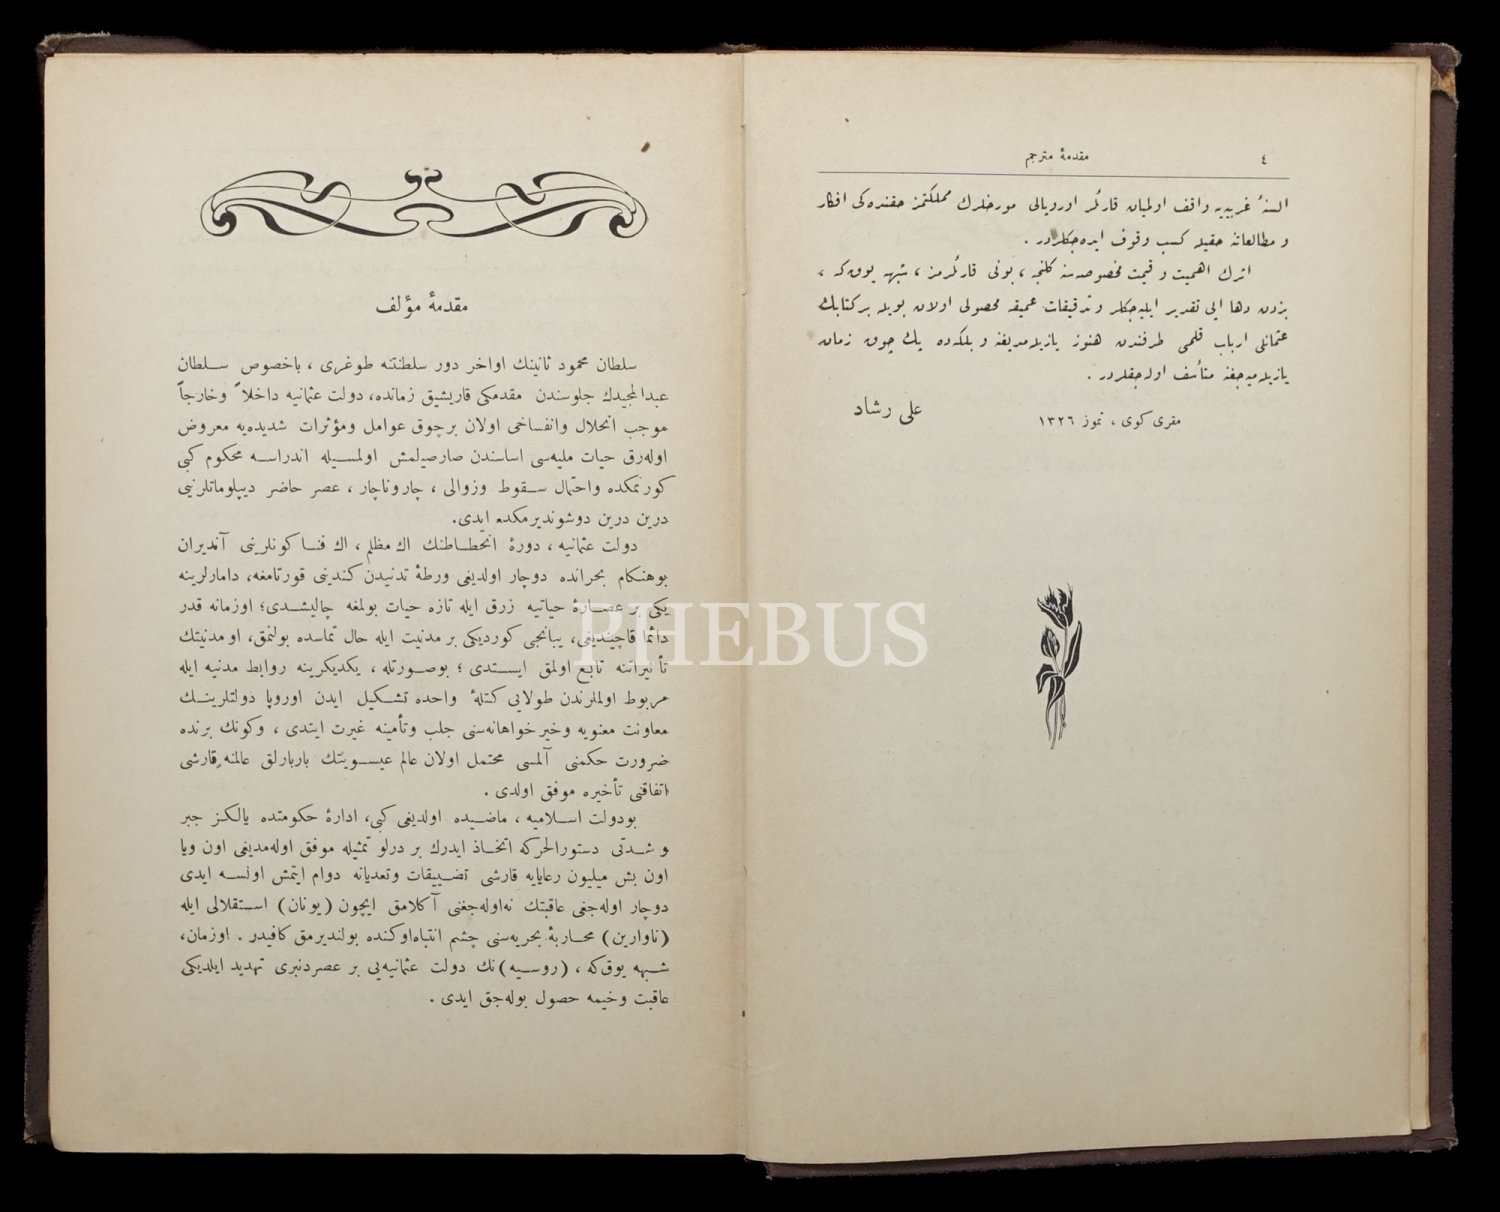 ٤
مقدمۀ مترجم
السنۀ غربيه‌يه واقف اولميان قارئلر اوروپالى مورخلرك مملكتمز حقنده‌كى افكار
و مطالعاتنه حقيله كسب وقوف ايده‌جكلردر .
اثرك اهميت و قيمت مخصوصه‌سنه كلنجه ، بونى قارئلرمز ، شبهه يوق‌كه ،
بزدن دها ايى تقدير ايليه‌جكلر و تدقيقات عميقه محصولى اولان بويله بر كتابك
عثمانلى ارباب قلمى طرفندن هنوز يازيله‌مديغنه و بلكه‌ده پك چوق زمان
يازيله‌ميه‌جغنه متأسف اوله‌جقلردر .
مقرى كوى ، تموز ١٣٢٦
على رشاد
مقدمۀ مؤلف
سلطان محمود ثانينك اواخر دور سلطنتنه طوغرى ، باخصوص سلطان
عبدالمجيدك جلوسندن مقدمكى قاريشيق زمانده، دولت عثمانيه داخلاً وخارجاً
موجب انحلال وانفساخى اولان برچوق عوامل ومؤثرات شديده‌يه معروض
اوله‌رق حيات مليه‌سى اساسندن صارصيلمش اولمسيله اندراسه محكوم كبى
كورنمكده واحتمال سقوط وزوالى ، چاروناچار ، عصر حاضر ديپلوماتلرينى
درين درين دوشونديرمكده ايدى.
دولت عثمانيه ، دورۀ انحطاطنك اك مظلم ، اك فنا كونلرينى آنديران
بوهنكام بحرانده دوچار اولديغى ورطۀ تدنيدن كندينى قورتامغه، دامارلرينه
يكى بر عصارۀ حياتيه زرق ايله تازه حيات بولمغه چاليشدى؛ اوزمانه قدر
دائما قاچينديغى، يبانجى كورديكى بر مدنيت ايله حال تماسده بولنمق، او مدنيتك
تأثيراتنه تابع اولمق ايستدى ؛ بوصورتله ، يكديكرينه روابط مدنيه ايله
مربوط اولملرندن طولايى كتلۀ واحده تشكيل ايدن اوروپا دولتلرينك
معاونت معنويه وخيرخواهانه‌سنى جلب وتأمينه غيرت ايتدى ، وكونك برنده
ضرورت حكمنى آلمسى محتمل اولان عالم عيسويتك باربارلق عالمنه قارشى
اتفاقنى تأخيره موفق اولدى .
بودولت اسلاميه ، ماضيده اولديغى كبى، ادارۀ حكومتده يالكز جبر
و شدتى دستورالحركه اتخاذ ايدرك بر درلو تمثيله موفق اوله‌مديغى اون ويا
اون بش ميليون رعايايه قارشى تضييقات وتعدياته دوام ايتمش اولسه ايدى
دوچار اوله‌جغى عاقبتك نه‌اوله‌جغنى آكلامق ايچون (يونان) استقلالى ايله
(ناوارين) محاربۀ بحريه‌سنى چشم انتباه‌اوكنده بولنديرمق كافيدر . اوزمان،
شبهه يوق‌كه ، (روسيه)نك دولت عثمانيه‌يى بر عصردنبرى تهديد ايلديكى
عاقبت وخيمه حصول بوله‌جق ايدى .
PHEBUS